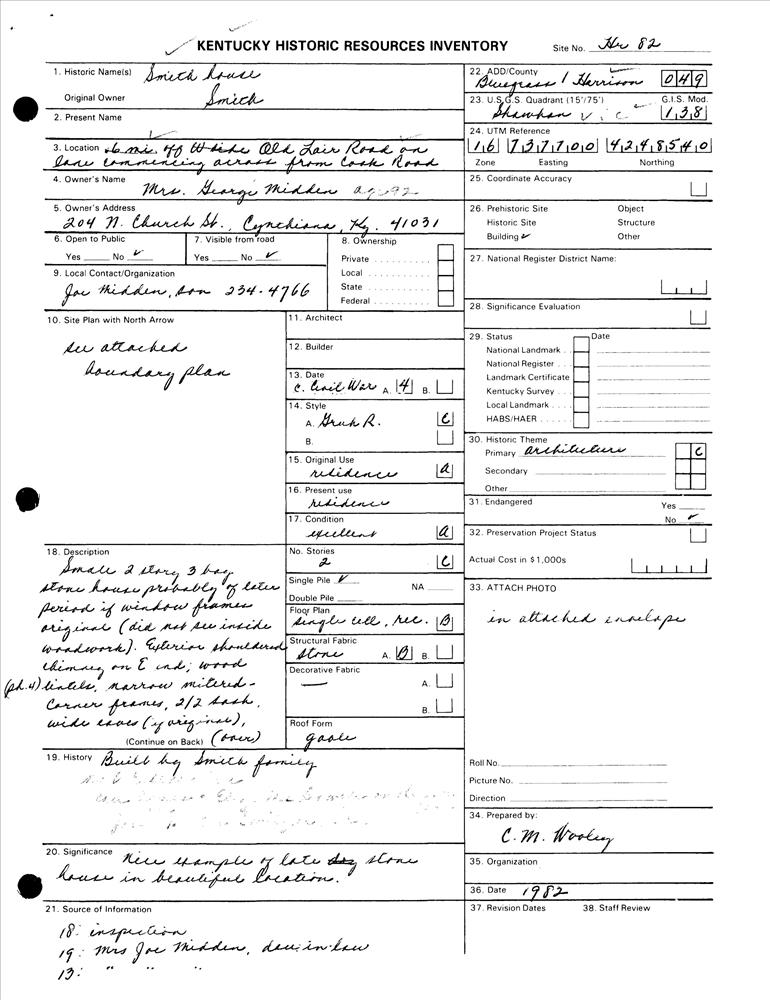 KENTUCKY HISTORIC RESOURCES INVENTORY
Site No. Hr 82
1. Historic Name(s) Smith house
Original Owner Smith
2. Present Name
3. Location .6 mi. off W side Old Lair Road on
lane commencing across from Cook Road
4. Owner's Name Mrs. George Midden age 92
5. Owner's Address
204 N. Church St., Cynthiana, Ky. 41031
6. Open to Public
Yes No ✓
7. Visible from road
Yes No ✓
8. Ownership
Private
Local
State
Federal
9. Local Contact/Organization
Joe Midden, son 234-4766
10. Site Plan with North Arrow
see attached
boundary plan
11. Architect
12. Builder
13. Date
c. Civil War A. 4 B.
14. Style
A. Greek R. C
B.
15. Original Use
residence a
16. Present use
residence
17. Condition
excellent a
18. Description
Small 2 story 3 bay
stone house probably of later
period if window frames
original (did not see inside
woodwork). Exterior shouldered
chimney on E end; wood
(ph.4) lintels, narrow mitered-
corner frames, 2/2 sash,
wide eaves (if original),
(Continue on Back) (over)
No. Stories
2 C
Single Pile ✓
NA
Double Pile
Floor Plan
single cell, rec. B
Structural Fabric
stone A. B B.
Decorative Fabric
— A.
B.
Roof Form
gable
19. History Built by Smith family
20. Significance Nice example of late stone
house in beautiful location.
21. Source of Information
18: inspection
19: Mrs Joe Midden, dau-in-law
13: " " "
22. ADD/County
Bluegrass / Harrison 049
23. U.S.G.S. Quadrant (15'/75') G.I.S. Mod.
Shawhan 138
24. UTM Reference
16 737700 4248540
Zone Easting Northing
25. Coordinate Accuracy
26. Prehistoric Site Object
Historic Site Structure
Building ✓ Other
27. National Register District Name:
28. Significance Evaluation
29. Status Date
National Landmark
National Register
Landmark Certificate
Kentucky Survey
Local Landmark
HABS/HAER
30. Historic Theme
Primary architecture C
Secondary
Other
31. Endangered
Yes
No ✓
32. Preservation Project Status
Actual Cost in $1,000s
33. ATTACH PHOTO
in attached envelope
Roll No.
Picture No.
Direction
34. Prepared by:
C. M. Wooley
35. Organization
36. Date 1982
37. Revision Dates 38. Staff Review